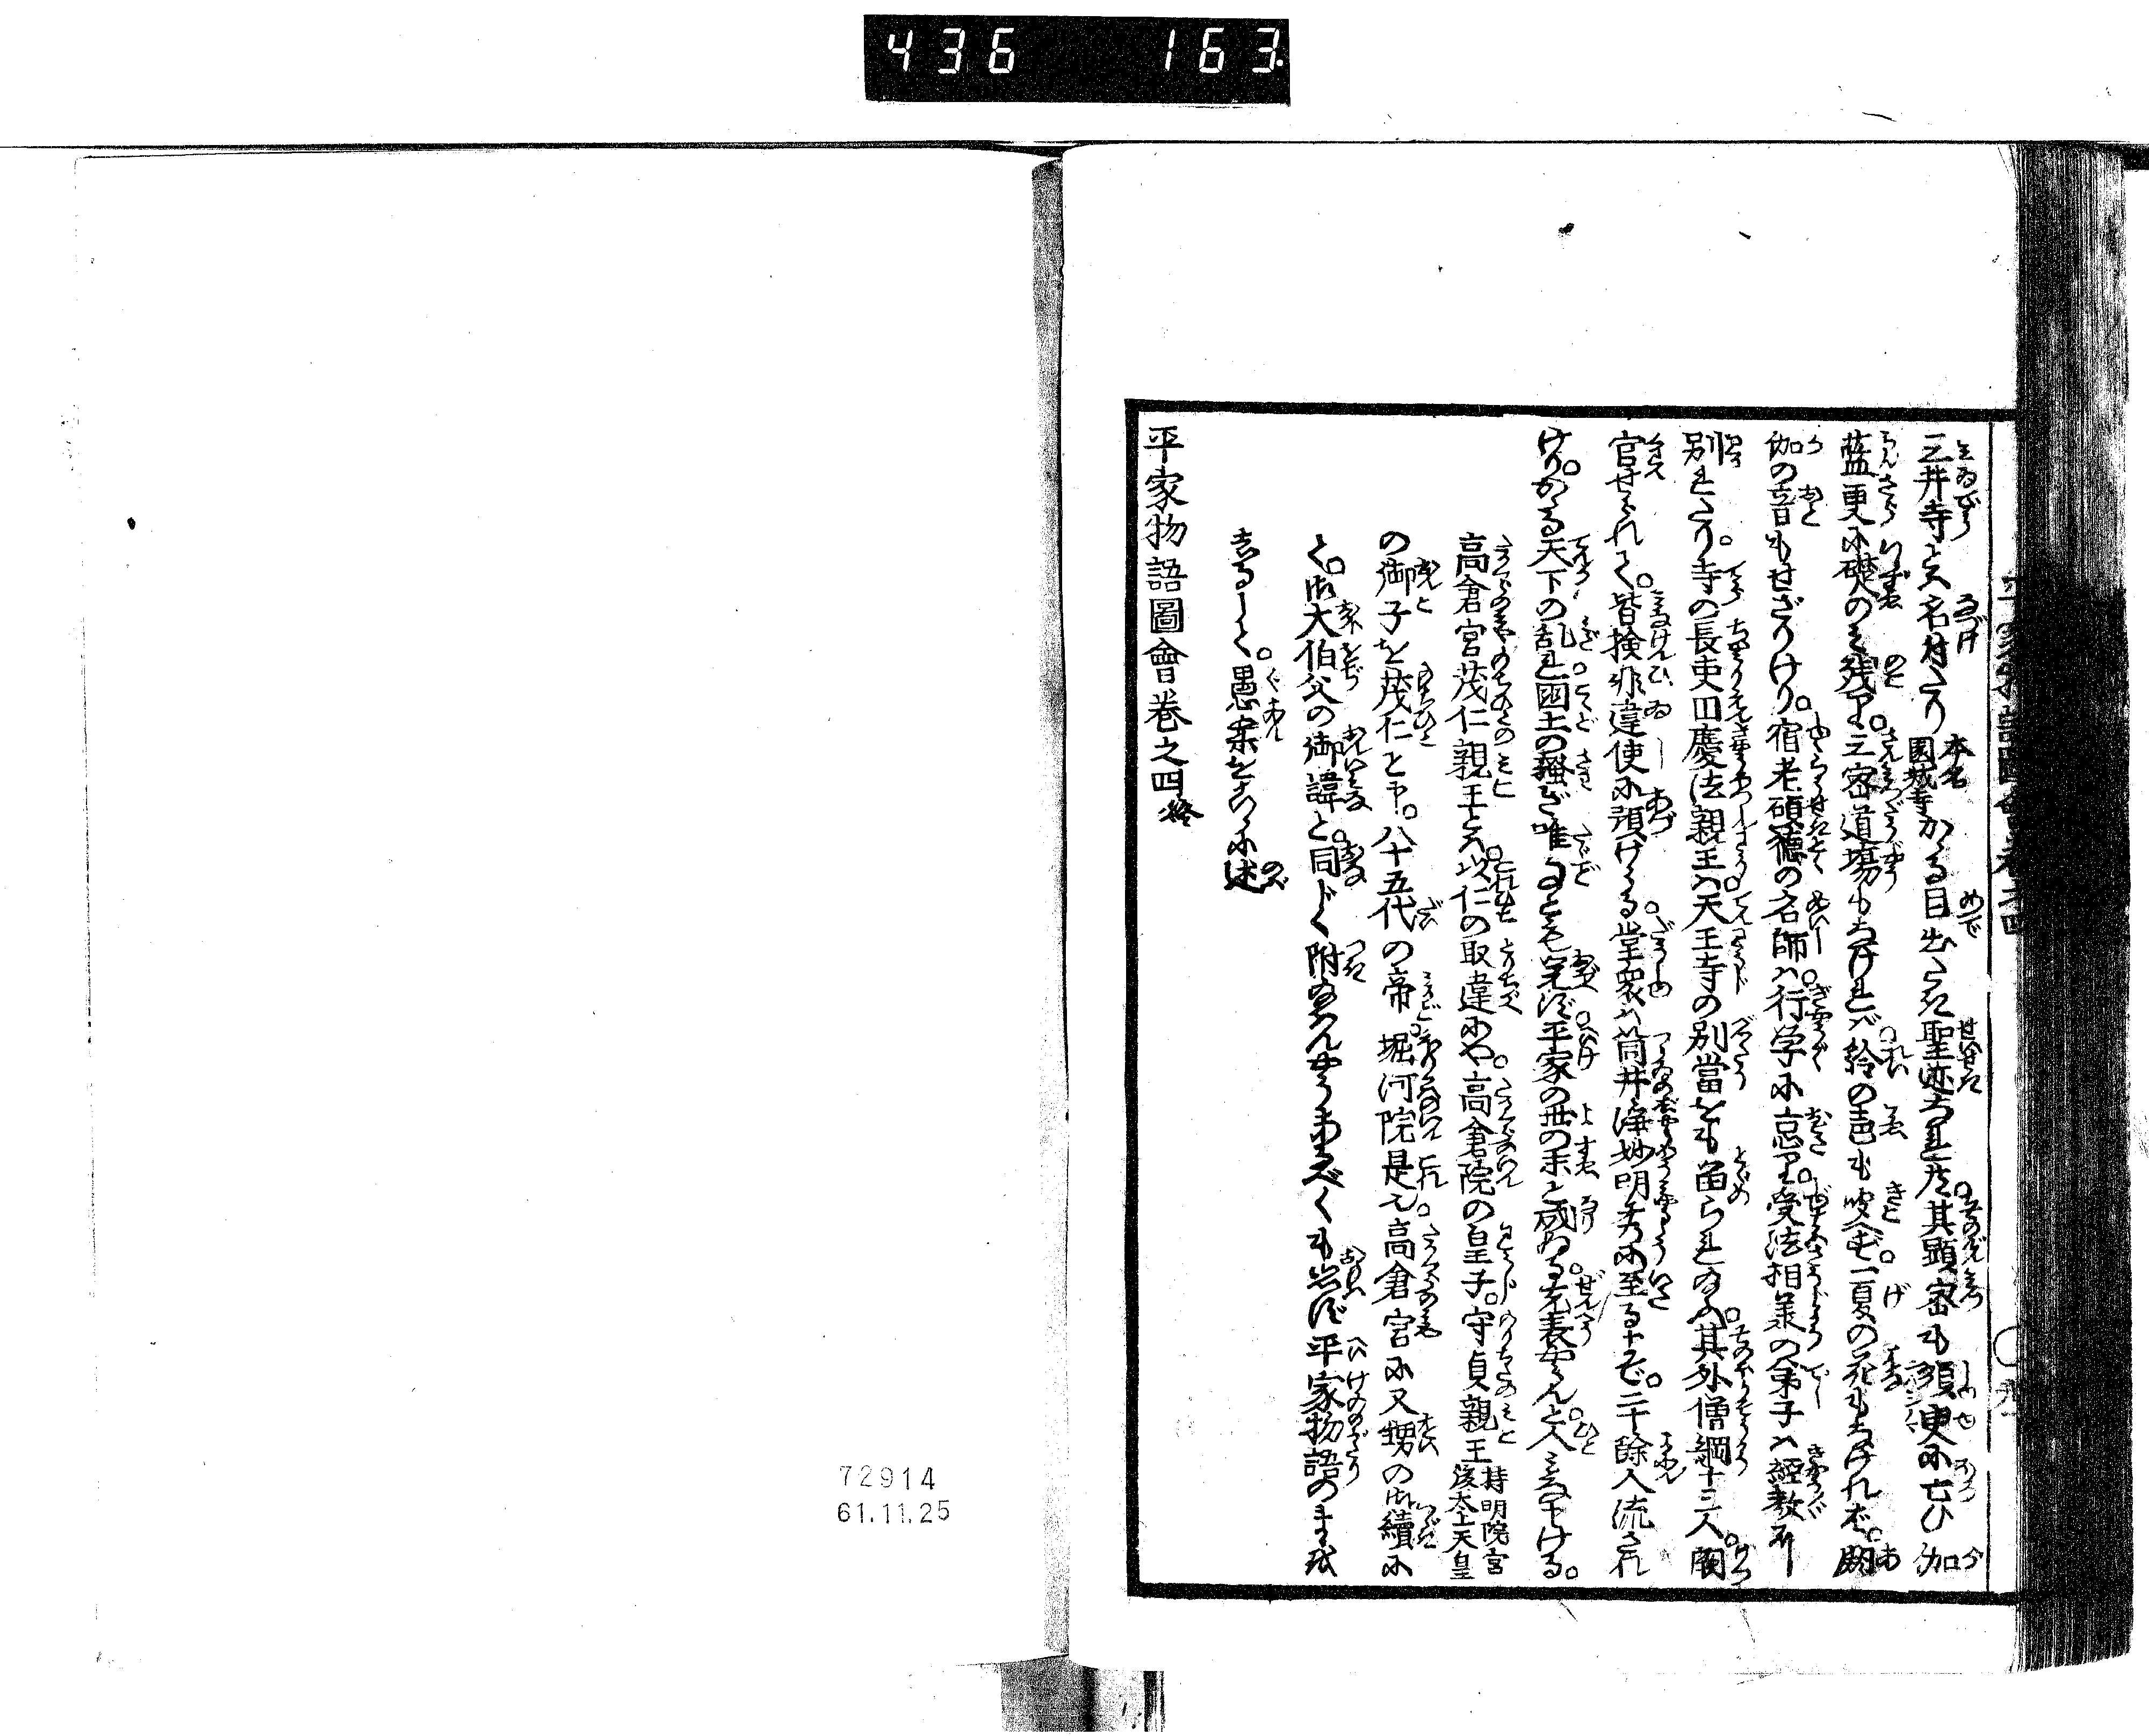 436 163
三井寺とハ名付たり本名園城寺かゝる目出たき聖跡なれども其顕密も須臾に亡ひ伽
藍更に礎のミ残り。三密道場もなけれバ。鈴の声も聞えず。一夏の花もなけれバ。閼
伽の音もせざりけり。宿老碩徳の名師ハ。行学に怠り。受法相承の弟子ハ経教に
別れたり。寺の長吏円慶法親王ハ。天王寺の別當をも留られ給ふ。其外僧綱十三人。闕
官せられて。皆検非違使に預けらる。堂衆ハ筒井浄妙明秀に至るまで。三十餘人流され
けり。かゝる天下の乱れ。国土の騒ぎ唯事とも覚ず。平家の世の末と成ぬる先表やらんと。人ミな申ける。
高倉宮茂仁親王とハ。以仁の取違にや。高倉院の皇子。守貞親王持明院宮後太上天皇
の御子を茂仁と申。八十五代の帝堀河院是也。高倉宮に又甥の御續に
て。御大伯父の御諱と。同じく附給ハんやうあるべくも覚ず。平家物語のまゝ
しるして。愚案をこゝに述
平家物語圖會巻之四終
72914
61.11.25